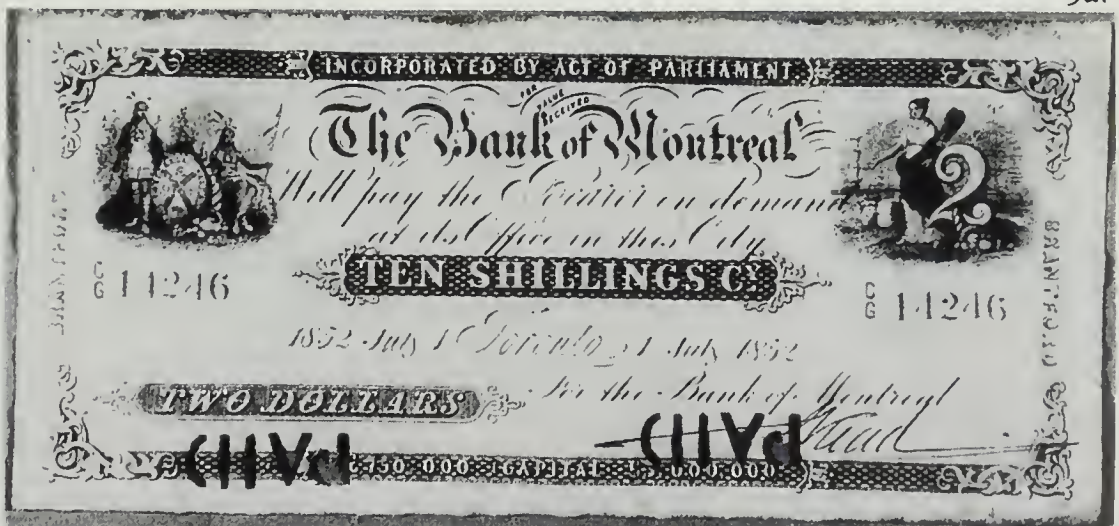 INCORPORATED BY ACT OF PARLIAMENT.
FOR VALUE RECEIVED
The Bank of Montreal
Will pay the Bearer on demand
at its Office in this City
TEN SHILLINGS CY.
C
G 14246
C
G 14246
BRANTFORD
BRANTFORD
1852 July 1 Toronto, 1 July 1852
TWO DOLLARS
For the Bank of Montreal
PAID
PAID
£750,000 CAPITAL $3,000,000